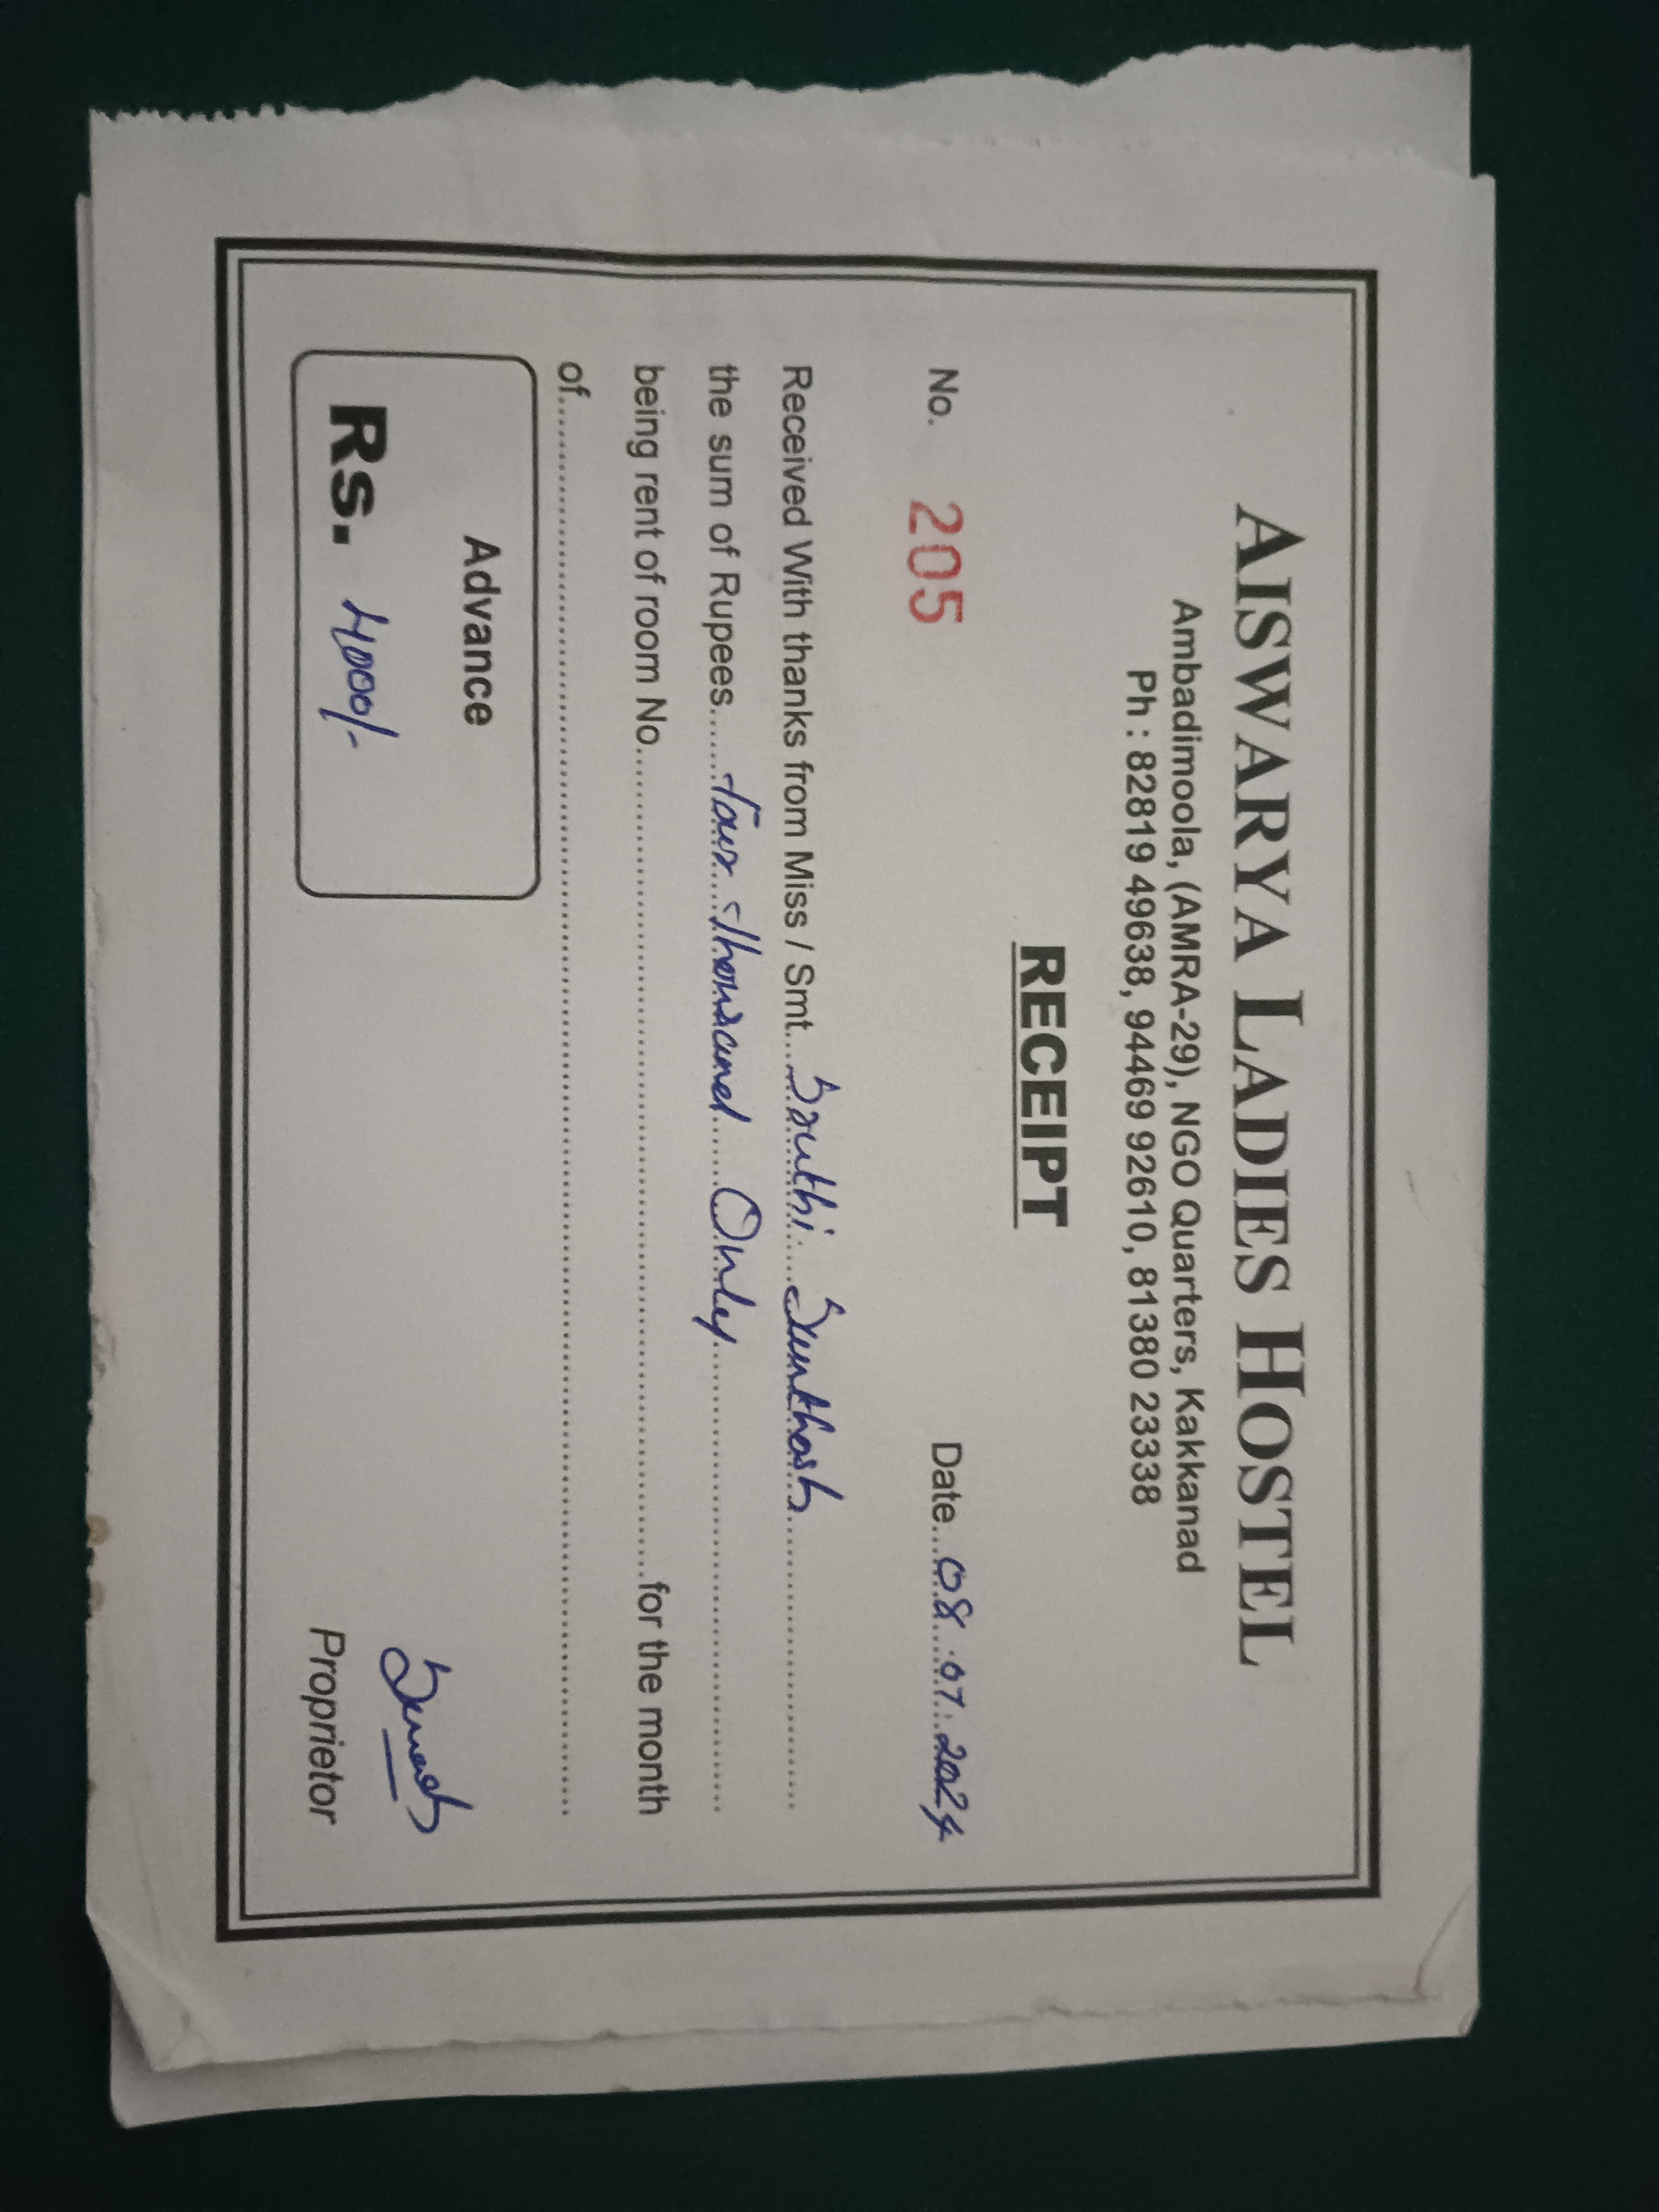 AISWARYA LADIES HOSTEL
Ambadimoola, (AMRA-29), NGO Quarters, Kakkanad
Ph : 82819 49638, 94469 92610, 81380 23338
RECEIPT
No. 205 Date...08.07.2024
Received With thanks from Miss / Smt....Sruthi Santhosh...
the sum of Rupees...four thousand Only...
being rent of room No...for the month
of...
Advance
Rs. 4000/-
Proprietor